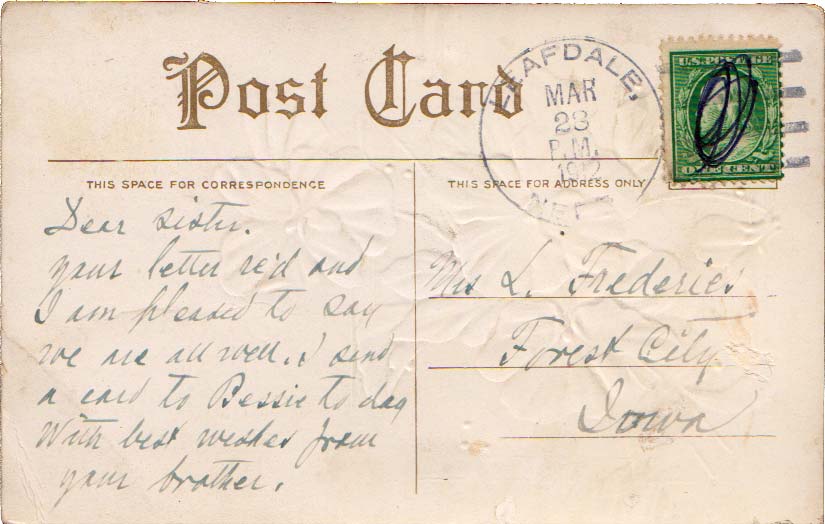 Post Card
LEAFDALE,
MAR
23
P.M.
1912
NEB
U.S. POSTAGE
ONE CENT
THIS SPACE FOR CORRESPONDENCE
THIS SPACE FOR ADDRESS ONLY
Dear sister.
your letter re'd and
I am pleased to say
we are all well. I send
a card to Bessie to day
With best wishes from
your brother.
Mrs L. Frederies
Forest City
Iowa